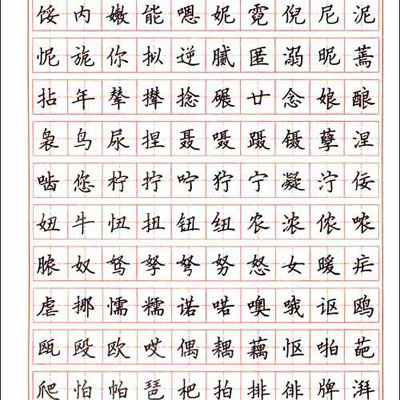 馁内嫩能嗯妮霓倪尼泥
怩旎你拟逆腻匿溺昵蔫
拈年辇撵捻碾廿念娘酿
袅鸟尿捏聂嗫蹑镊孽涅
啮您柠拧咛狞宁凝泞佞
妞牛忸扭钮纽农浓侬哝
脓奴驽孥弩努怒女暖疟
虐挪懦糯诺喏噢哦讴鸥
瓯殴欧哎偶耦藕怄啪葩
爬怕帕琶杷拍排徘牌湃